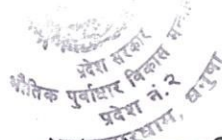 प्रदेश सरकार
भौतिक पुर्वाधार विकास
प्रदेश नं. २
धनुषा